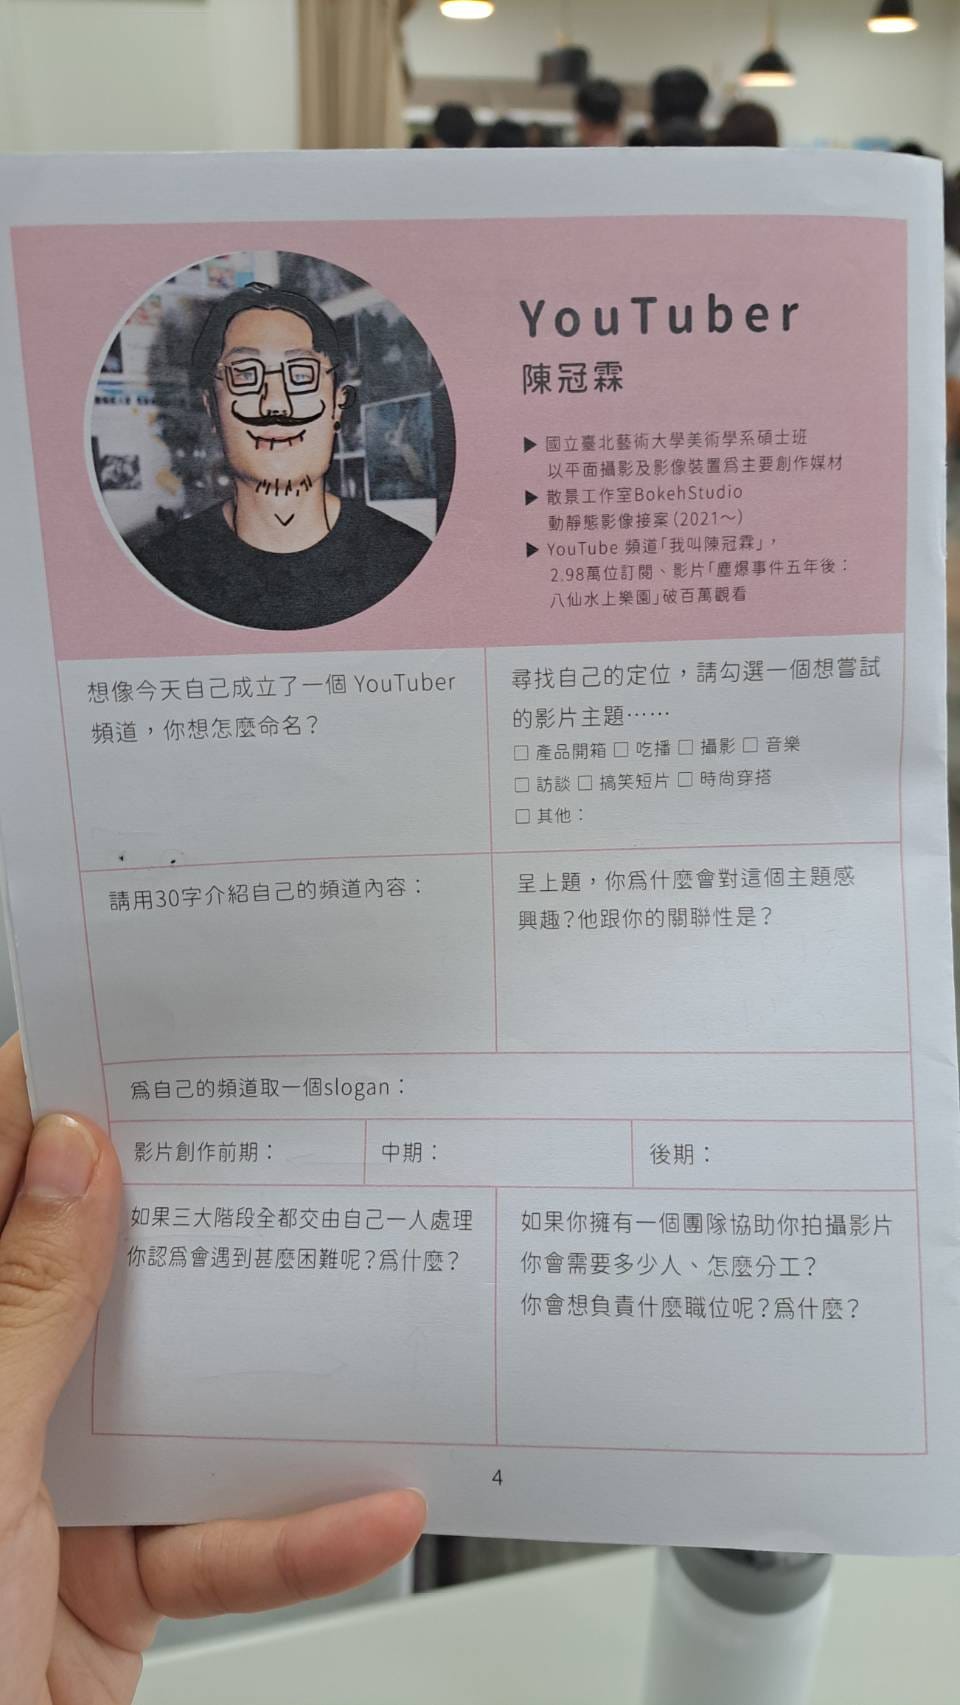 YouTuber
陳冠霖
▶ 國立臺北藝術大學美術學系碩士班
以平面攝影及影像裝置為主要創作媒材
▶ 散景工作室BokehStudio
動靜態影像接案(2021~)
▶ YouTube 頻道「我叫陳冠霖」,
2.98萬位訂閱、影片「塵爆事件五年後:
八仙水上樂園」破百萬觀看
想像今天自己成立了一個 YouTuber
頻道,你想怎麼命名?
尋找自己的定位,請勾選一個想嘗試
的影片主題……
□ 產品開箱 □ 吃播 □ 攝影 □ 音樂
□ 訪談 □ 搞笑短片 □ 時尚穿搭
□ 其他:
請用30字介紹自己的頻道內容:
呈上題,你為什麼會對這個主題感
興趣?他跟你的關聯性是?
為自己的頻道取一個slogan:
影片創作前期:
中期:
後期:
如果三大階段全都交由自己一人處理
你認為會遇到甚麼困難呢?為什麼?
如果你擁有一個團隊協助你拍攝影片
你會需要多少人、怎麼分工?
你會想負責什麼職位呢?為什麼?
4